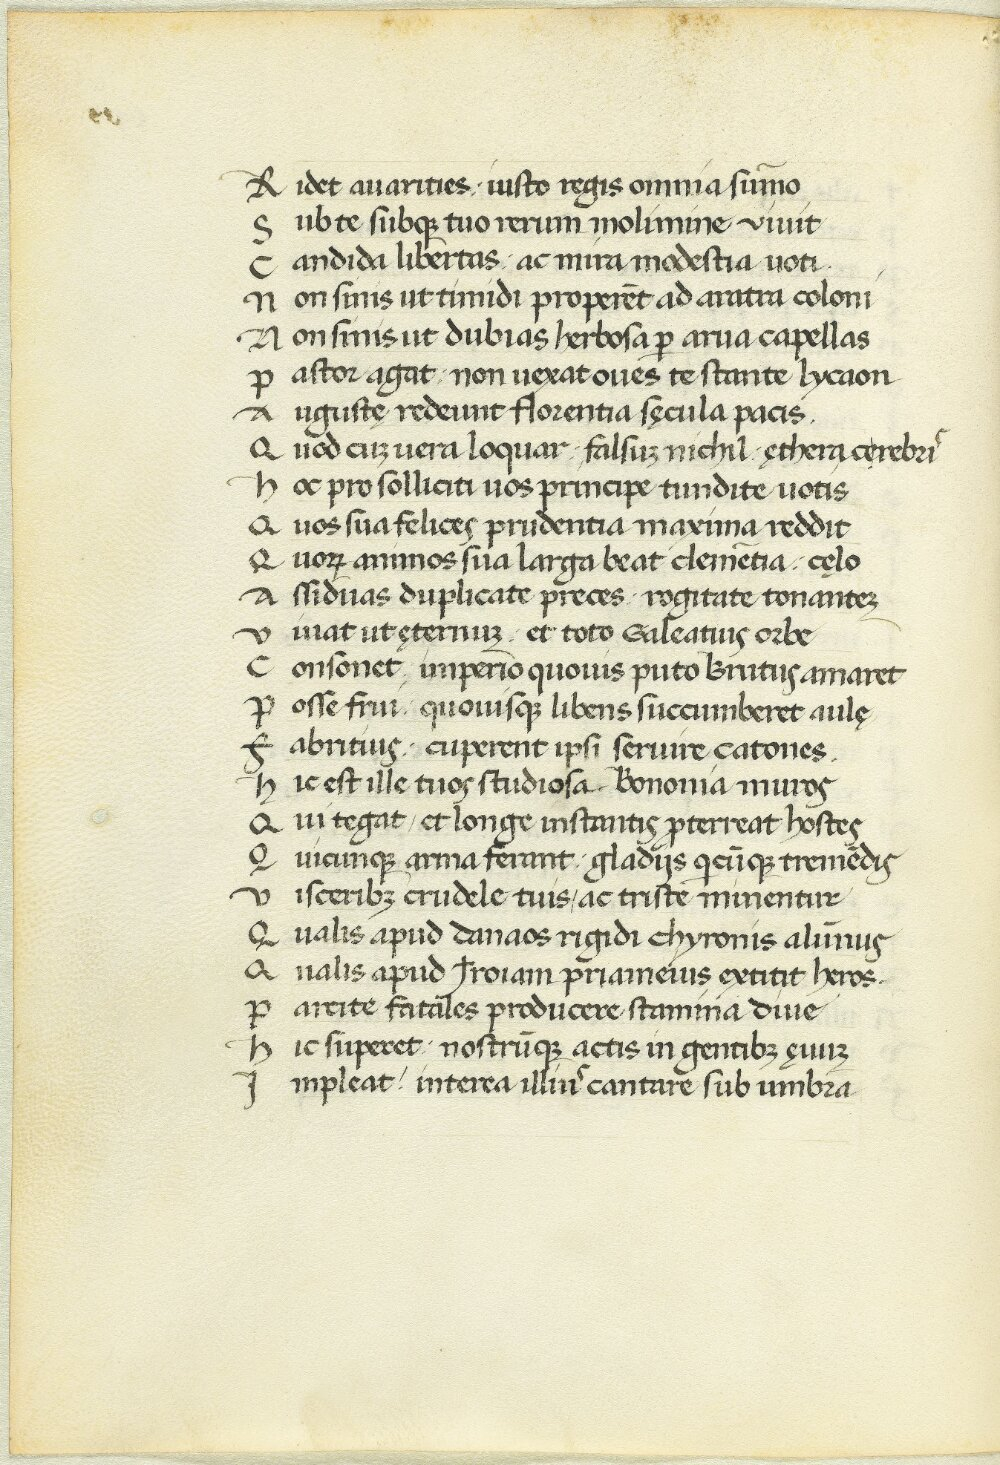 R idet auarities · iusto regis omnia sum̄o
S ub te subqꝫ tuo rerum molimine viuit
C andida libertas · ac mira modestia uoti ·
N on sinis ut timidi properēt ad aratra coloni
N on sinis ut dubias herbosa ꝑ arua capellas
P astor agat · non uexat oues te stante lycaon
A ugustę redeunt florentia sęcula pacis ·
Q uod cuꝫ uera loquar · falsuꝫ nichil · ęthera cerebri
H oc pro solliciti uos principe tundite uotis
Q uos sua felices prudentia maxima reddit
Q uoꝝ animos sua larga beat clemētia · cęlo
A ssiduas duplicate preces · rogitate tonanteꝫ
V iuat ut ęternuꝫ · et toto Galeatius orbe
C onsonet · imperio quouis puto Brutus amaret
P osse frui · quouisqꝫ libens succumberet aulę
F abritius · cuperent ipsi seruire Catones ·
H ic est ille tuos studiosa · Bononia muros
Q ui tegat / et longe instantis p̄terreat hostes
Q uicunqꝫ arma ferant · gladijs qcūqꝫ tremēdis
V isceribꝫ crudele tuis / ac triste minentur
Q ualis apud Danaos rigidi Chyronis alūnus
Q ualis apud Troiam priameius extitit heros ·
P arcite fatales producere stamina diue
H ic superet · nostrūqꝫ actis in gentibꝫ ęuuꝫ
I mpleat / interea illiuꝰ cantare sub umbra